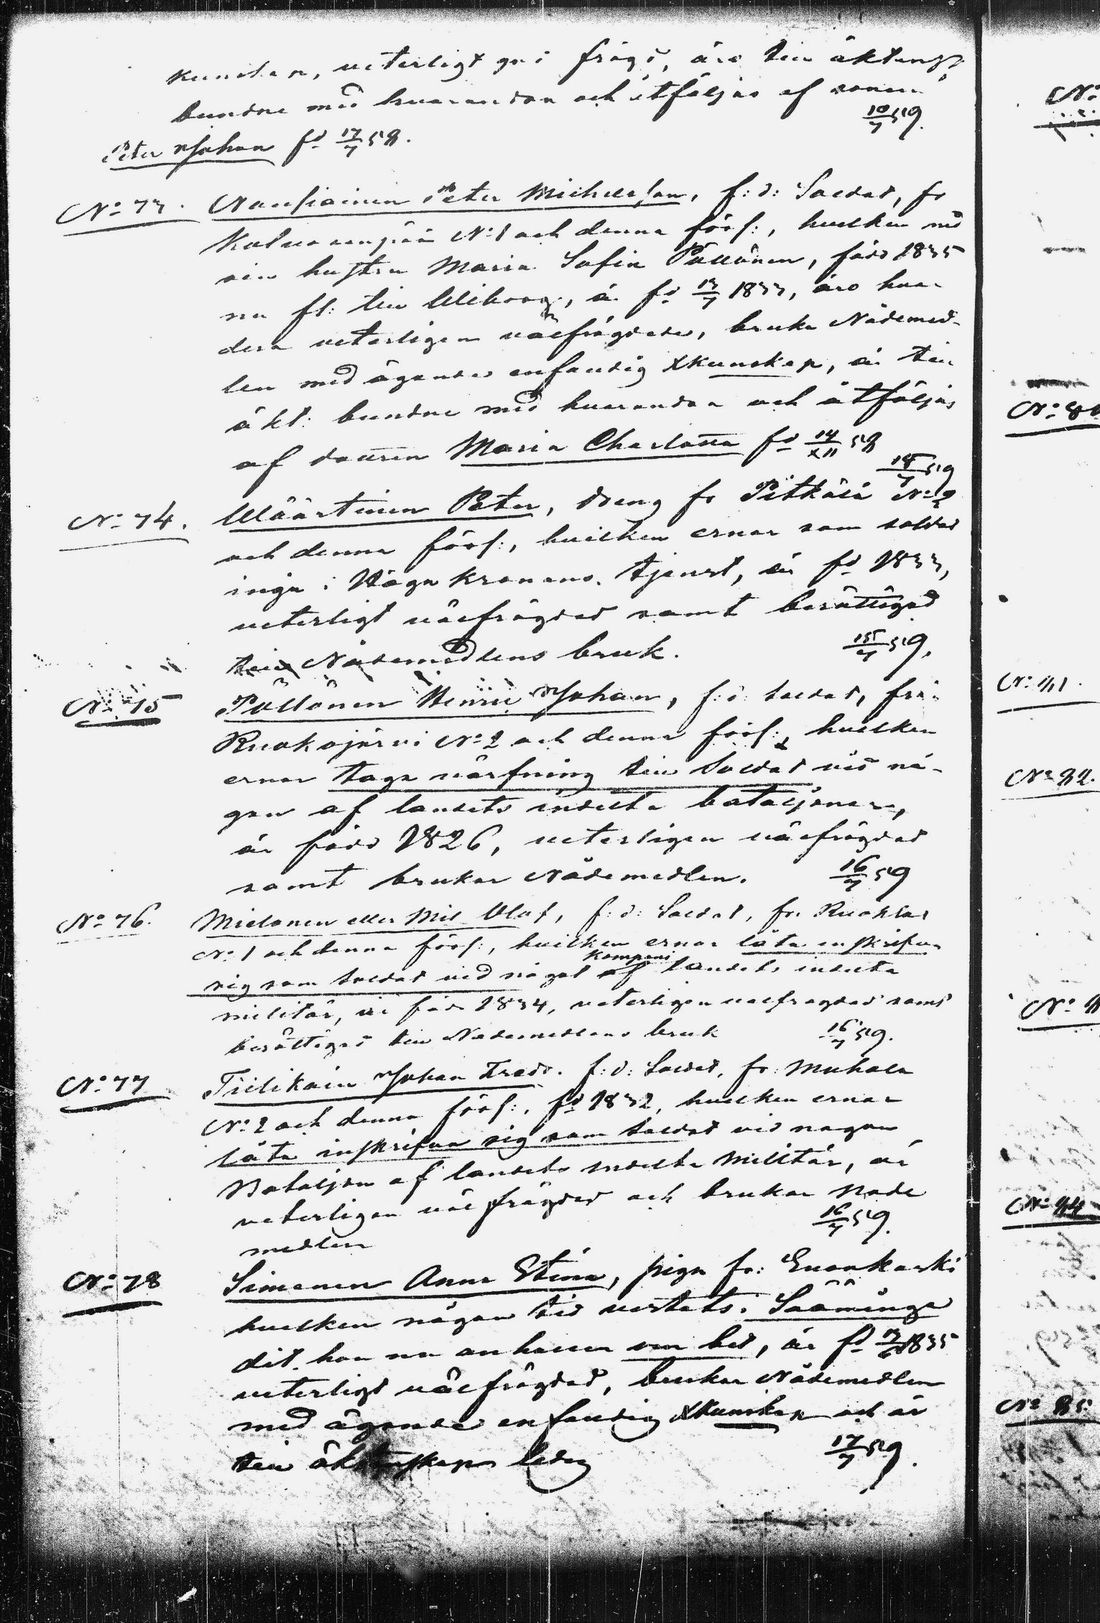 kunskap, veterligt god frägd, äro till äktenskap
bundne med hvarandra och åtföljas af sonen
Peter Johan fd 17/7 58. 10/7 59.
No 73. Nousiainen Peter Michelsson, f: d: Soldat, fr
No 1 och denna förs:, hvilken med
sin hustru Maria Sofia Pöllönen, född 1835
nu fl: till Wiborg, är fd 13/7 1833, äro hvar-
dera veterligen välfrägdade, bruka Nådemed-
len med ägande enfaldig Xkunskap, är till
äkt: bundne med hvarandra och åtföljas
af dottren Maria Charlotta fd 14/XII 58
14/7 59
No 74. Wäärtinen Peter, dreng fr Pitkälä No 2
och denna förs:, hvilken ernar som soldat
ingå i Höga Kronans tjenst, är fd 1833,
veterligt välfrägdad samt berättigad
till Nådemedlens bruk. 15/7 59.
No 75 Pöllönen Henric Johan, f: d: soldat, från
Ruokojärvi No 2 och denna förs:, hvilken
ernar taga värfning till Soldat vid nå-
gon af landets indelta bataljoner,
är född 1826, veterligen välfrägdad
samt brukar Nådemedlen. 16/7 59
No 76. Mielonen eller Mil Olof, f: d: Soldat, fr
No 1 och denna förs:, hvilken ernar låta inskrifva
sig som soldat vid något kompani af landets indelta
militär, är född 1834, veterligen välfrägdad samt
berättigad till Nådemedlens bruk 16/7 59.
No 77 Tiilikain Johan Fredr. f: d: Soldat, fr: Muhola
No 2 och denna förs:, fd 1832, hvilken ernar
låta inskrifva sig som soldat vid någon
Bataljon af landets indelta Militär, är
veterligen välfrägdad och brukar Nåde
medlen 16/7 59.
No 78 Simonen Anna Stina, piga fr: Enonkoski
hvilken någon tid vistats i Sääminge
dit hon nu anhåller om bet, är fd 1835
veterligt välfrägdad, brukar Nådemedlen
med ägande enfaldig Xkunskap och är
till äktenskap ledig 17/7 59.
No
No 81.
No 82.
No 84
No 85